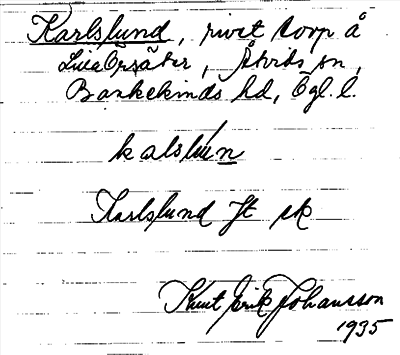 Karlslund, rivet torp å
Lilla Örsäter, Åtvids sn,
Bankekinds hd, Ögl. l.
kalslún
Karlslund Jt sk
Knut Erik Johansson
1935